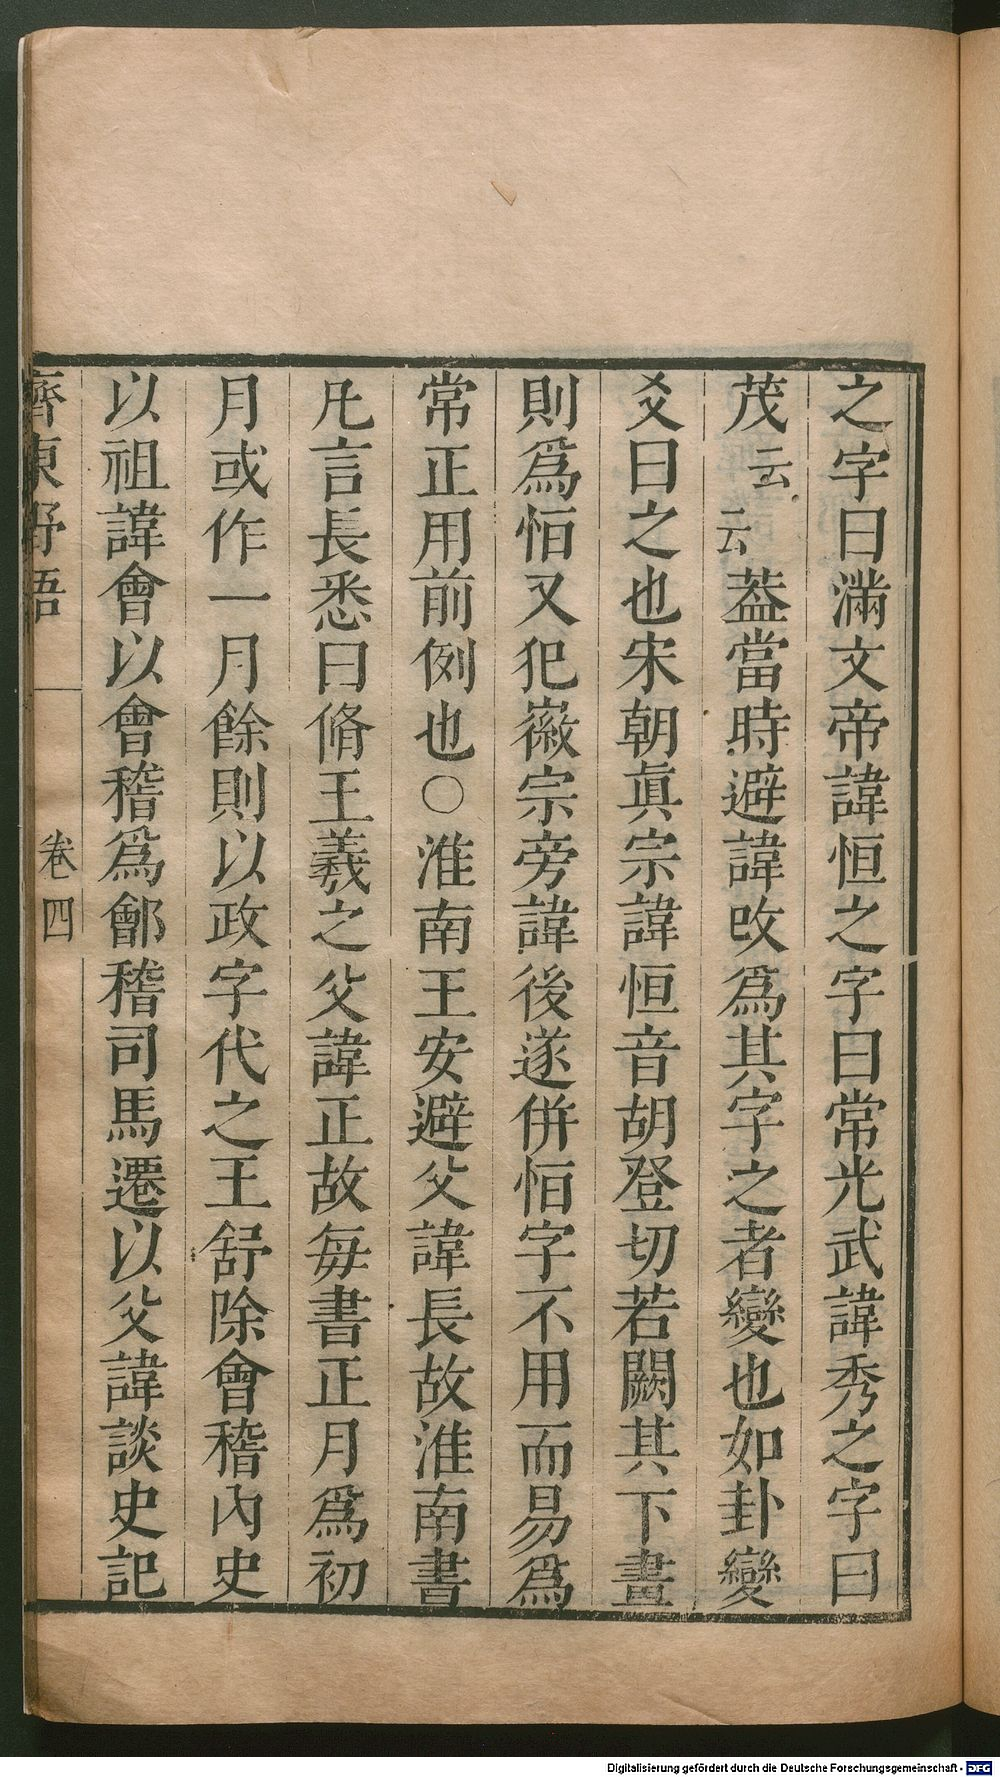 之字曰滿文帝諱恒之字曰常光武諱秀之字曰
茂云云葢當時避諱改爲其字之者變也如卦變
爻曰之也宋朝眞宗諱恒音胡登切若闕其下畫
則爲恒又犯徽宗旁諱後遂併恒字不用而易爲
常正用前例也○淮南王安避父諱長故淮南書
凡言長悉曰脩王羲之父諱正故每書正月爲初
月或作一月餘則以政字代之王舒除會稽內史
以祖諱會以會稽爲鄶稽司馬遷以父諱談史記
齊東野語
卷四
Digitalisierung gefördert durch die Deutsche Forschungsgemeinschaft - DFG